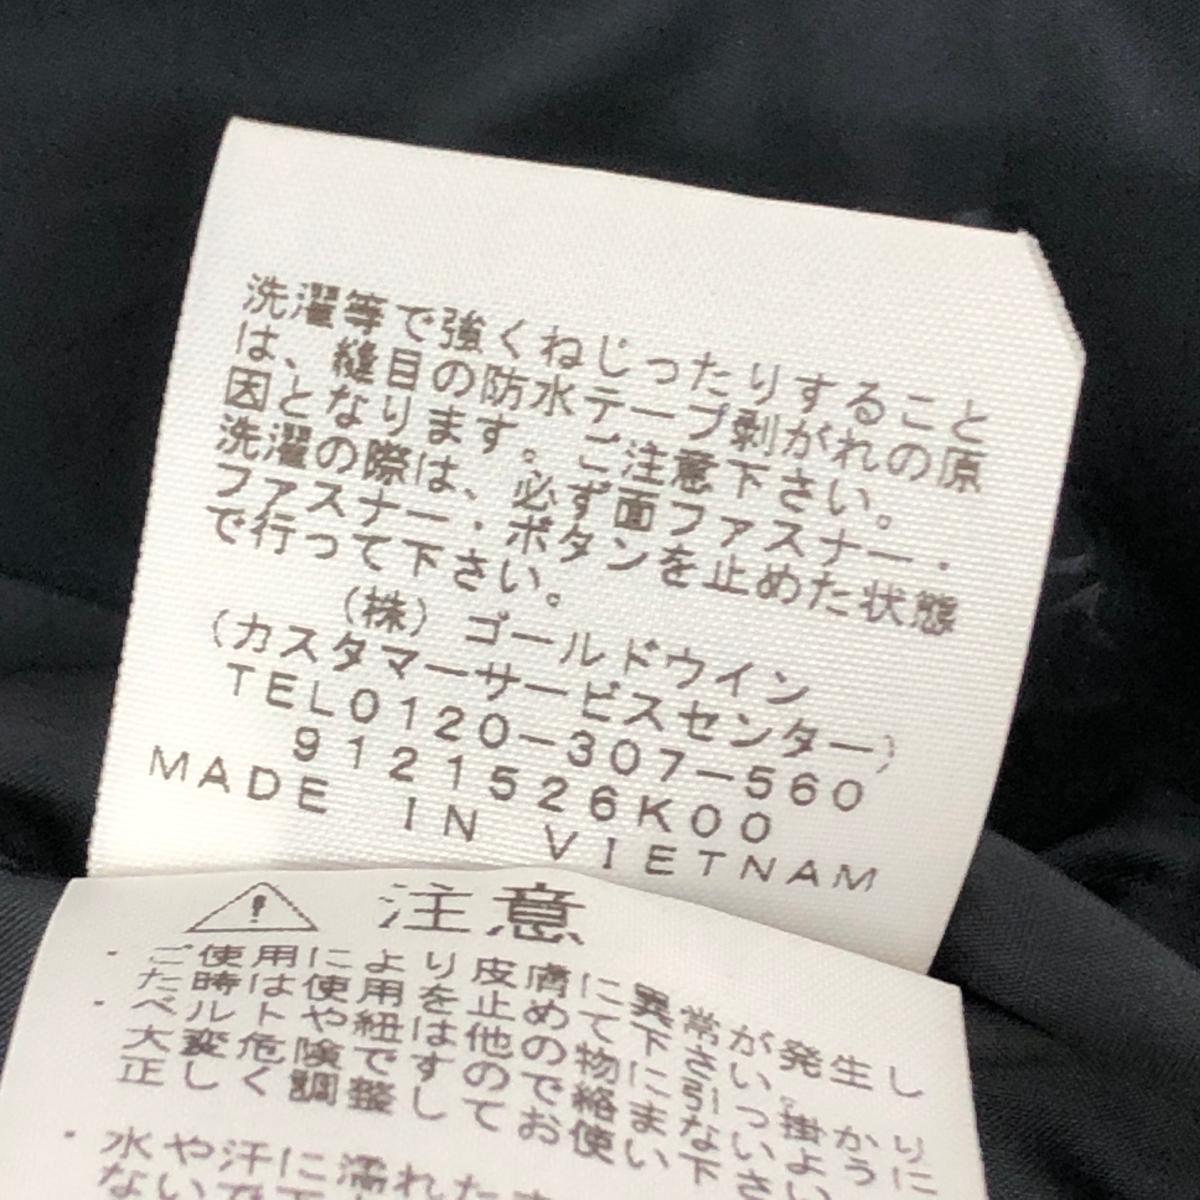 洗濯等で強くねじったりすること
は、縫目の防水テープ剥がれの原
因となります。ご注意下さい。
洗濯の際は、必ず面ファスナー・
ファスナー・ボタンを止めた状態
で行って下さい。
(株)ゴールドウイン
(カスタマーサービスセンター)
TEL0120-307-560
9121526K00
MADE IN VIETNAM
注意
・ご使用により皮膚に異常が発生し
た時は使用を止めて下さい。
・ベルトや紐は他の物に引っ掛かり
大変危険ですので絡まないように
正しく調整してお使い下さい
・水や汗に濡れた